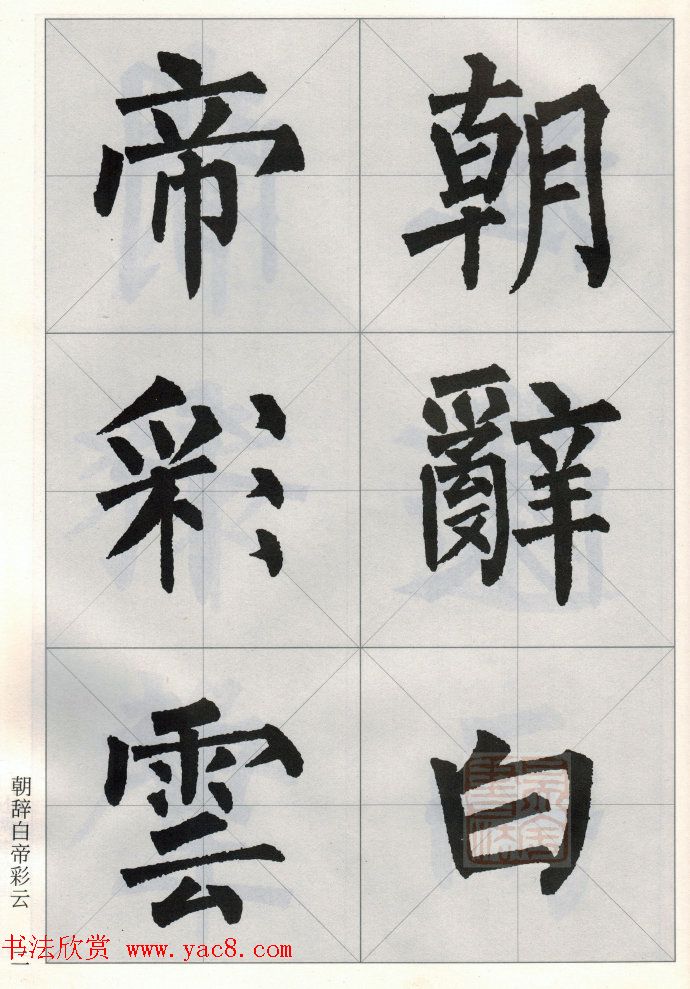 朝辭白
帝彩雲
朝辞白帝彩云
书法欣赏 www.yac8.com